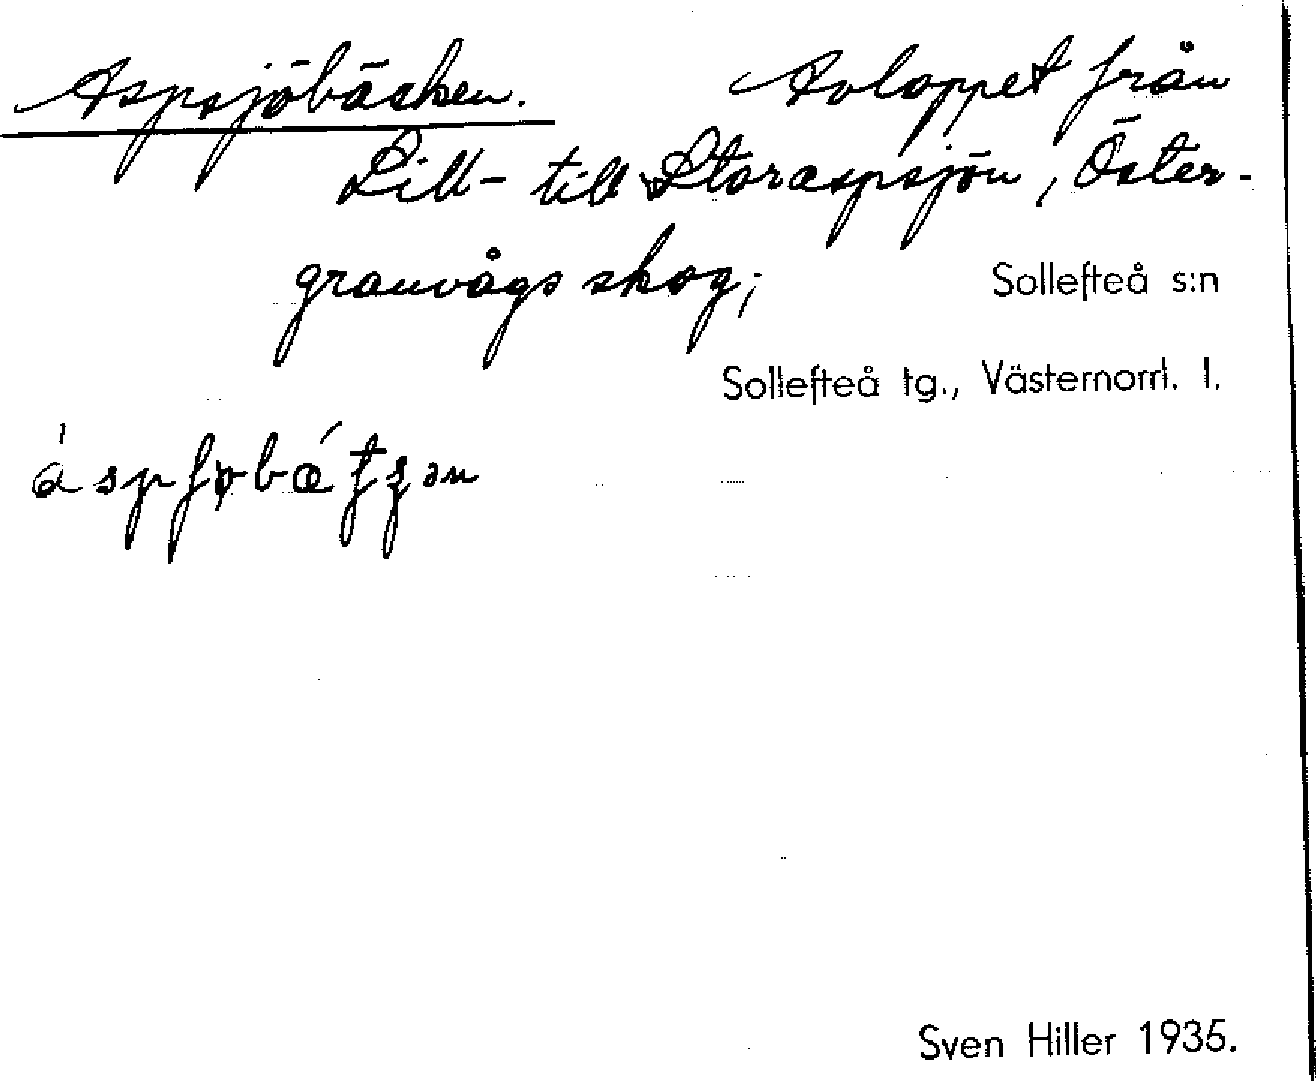 Aspsjöbäcken. Avloppet från
Lill- till Storaspsjön, Öster-
granvågs skog; Sollefteå s:n
Sollefteå tg., Västernorrl. l.
Sven Hiller 1935.